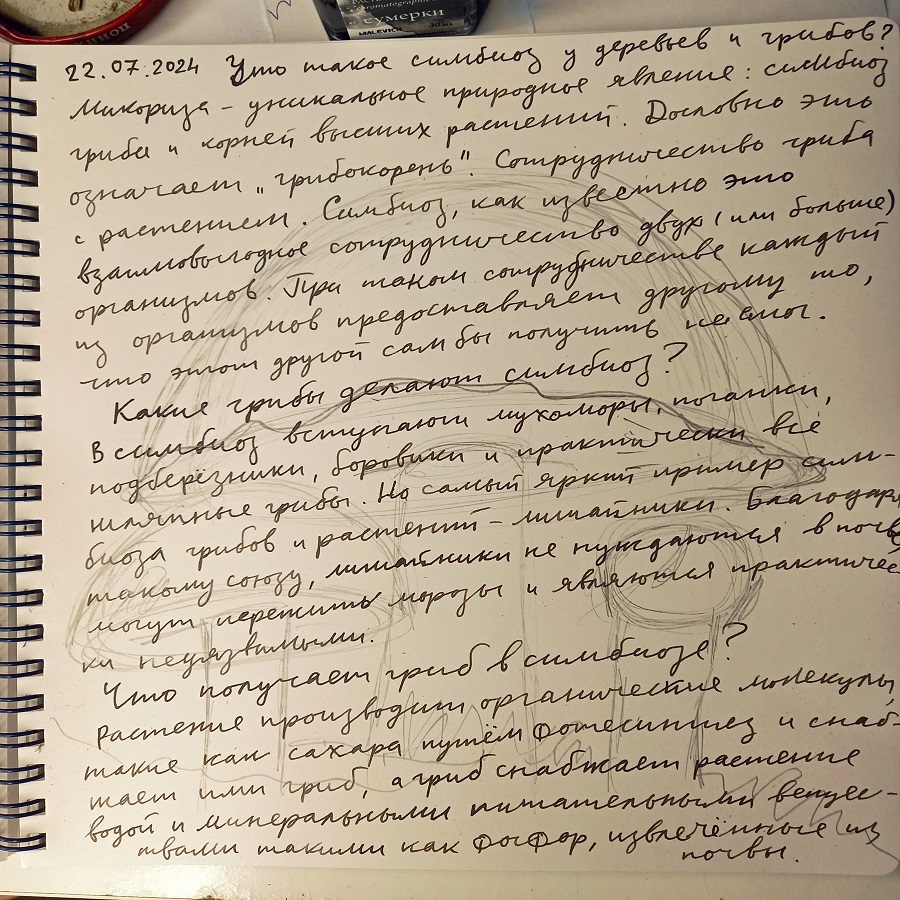 сумерки
MALEVICH
22.07.2024 Что такое симбиоз у деревьев и грибов?
Микориза - уникальное природное явление: симбиоз
гриба и корней высших растений. Дословно это
означает „грибокорень". Сотрудничество гриба
с растением. Симбиоз, как известно это
взаимовыгодное сотрудничество двух (или больше)
организмов. При таком сотрудничестве каждый
из организмов предоставляет другому то,
что этот другой сам бы получить не смог.
Какие грибы делают симбиоз?
В симбиоз вступают мухоморы, поганки,
подберёзники, боровики и практически все
шляпные грибы. Но самый яркий пример сим-
биоза грибов и растений - лишайники. Благодаря
такому союзу, лишайники не нуждаются в почве
могут пережить морозы и являются практичес
ки неуязвимыми.
Что получает гриб в симбиозе?
Растение производит органические молекулы,
такие как сахара путём фотесинтез и снаб-
жает ими гриб, а гриб снабжает растение
водой и минеральными питательными вещес-
твами такими как фосфор, извлечённые из
почвы.